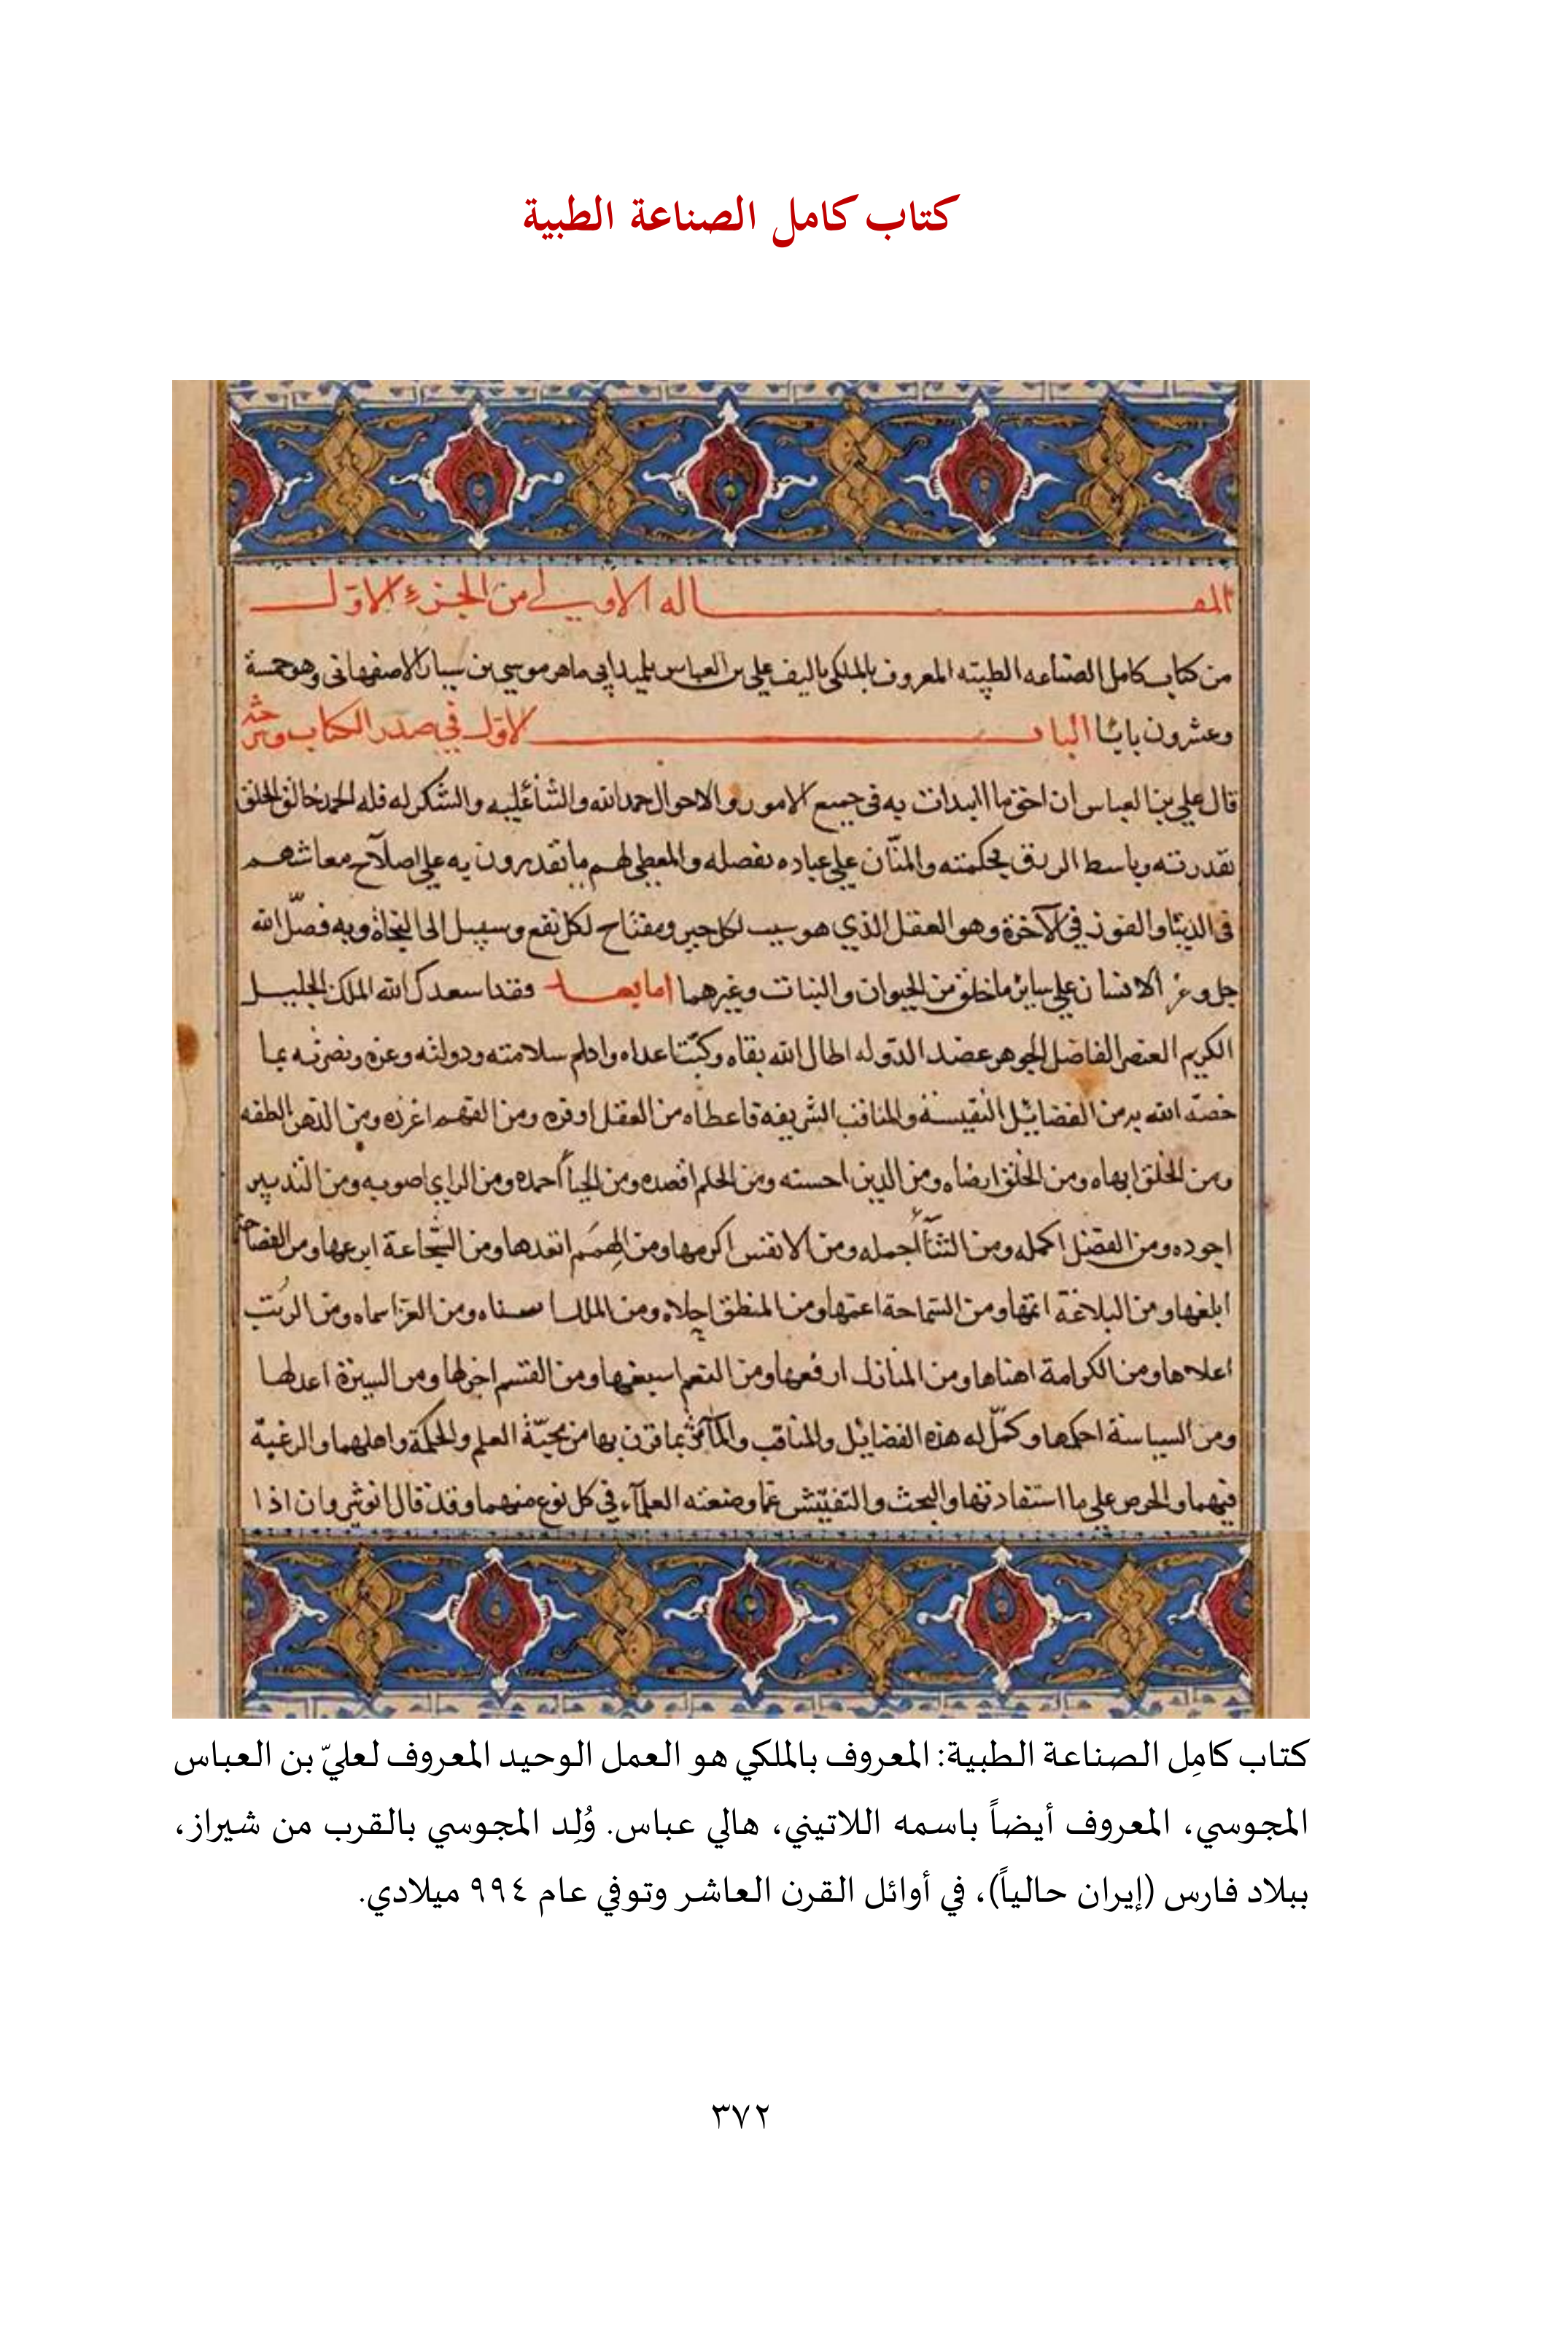 كتاب كامل الصناعة الطبية
المقاله الاولي من الجزء الاول
من كتاب كامل الصناعه الطبيه المعروف بالملكي تاليف علي بن العباس تلميذ ابي ماهر موسي بن سيار الاصفهاني وهو خمسة
وعشرون بابا الباب الاول في صدر الكتاب
قال علي بن العباس ان احق ما ابتدات به في جميع الامور والاحوال حمد الله والثنا عليه والشكر له فله الحمد خالق الخلق
بقدرته وباسط الرزق بحكمته والمنّان علي عباده بفضله والمعطي لهم ما تقدرون به علي اصلاح معاشهم
في الدنيا والفوز في الآخرة وهو العقل الذي هو سبب لكل خير ومفتاح لكل نفع وسبيل الي النجاة وبه فضّل الله
جل وعز الانسان علي ساير ما خلق من الحيوان والنبات وغيرهما اما بعد فقد اسعدك الله الملك الجليل
الكريم العنصر الفاضل الجوهر عضد الدوله اطال الله بقاه وكبت اعداه وادام سلامته ودولته وعزه ونصرته بما
خصّه الله به من الفضايل النفيسة والمناقب الشريفة فاعطاه من العقل اوفره ومن الفهم اغزره ومن الذهن الطفه
ومن الخلق ابهاه ومن الخلق ارضاه ومن الدين احسنه ومن الحلم اقصده ومن الحيا احمده ومن الراي اصوبه ومن التدبير
اجوده ومن الفضل اكمله ومن الثنا اجمله ومن الانفس اكرمها ومن الهمم ابعدها ومن الشجاعة ابرعها ومن الفصاحة
ابلغها ومن البلاغة اتمها ومن السماحة اعمها ومن المنطق اجلاه ومن الملك اسناه ومن العز اسماه ومن الرتب
اعلاها ومن الكرامة اهناها ومن المنازل ارفعها ومن النعم اسبغها ومن القسم اجزلها ومن السيرة اعدلها
ومن السياسة احكمها وكمّل له هذه الفضايل والمناقب والمآثر بما قرن بها من محبّة العلم والحكمة واهلهما والرغبة
فيهما والحرص علي ما استفادتها والبحث والتفتيش عما وضعته العلماء في كل نوع منهما وقد قال انوشروان اذا
كتاب كامِل الصناعة الطبية: المعروف بالملكي هو العمل الوحيد المعروف لعليّ بن العباس
المجوسي، المعروف أيضاً باسمه اللاتيني، هالي عباس. وُلِد المجوسي بالقرب من شيراز،
ببلاد فارس (إيران حالياً)، في أوائل القرن العاشر وتوفي عام ٩٩٤ ميلادي.
٣٧٢